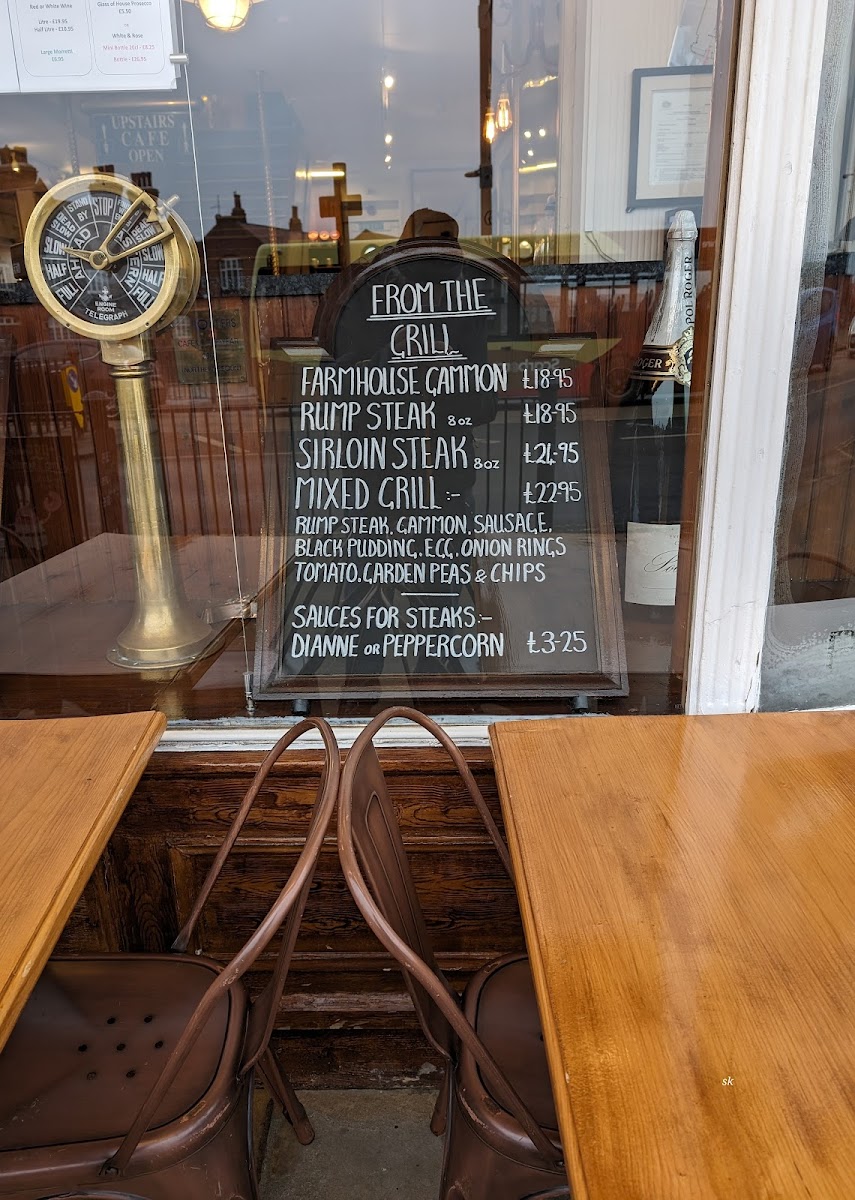 Red or White Wine
Litre - £19.95
Half Litre - £10.95
Glass of House Prosecco
£5.50
White & Rose
UPSTAIRS
CAFE
OPEN
STOP
STAND BY
DEAD SLOW
SLOW
HALF
FULL
AHEAD
ASTERN
DEAD SLOW
SLOW
HALF
FULL
ENGINE
ROOM
TELEGRAPH
FROM THE
GRILL
FARMHOUSE GAMMON £18-95
RUMP STEAK 8oz £18-95
SIRLOIN STEAK 8oz £21-95
MIXED GRILL :- £22-95
RUMP STEAK, GAMMON, SAUSAGE,
BLACK PUDDING, EGG, ONION RINGS
TOMATO, GARDEN PEAS & CHIPS
SAUCES FOR STEAKS:-
DIANNE OR PEPPERCORN £3-25
POL ROGER
sk